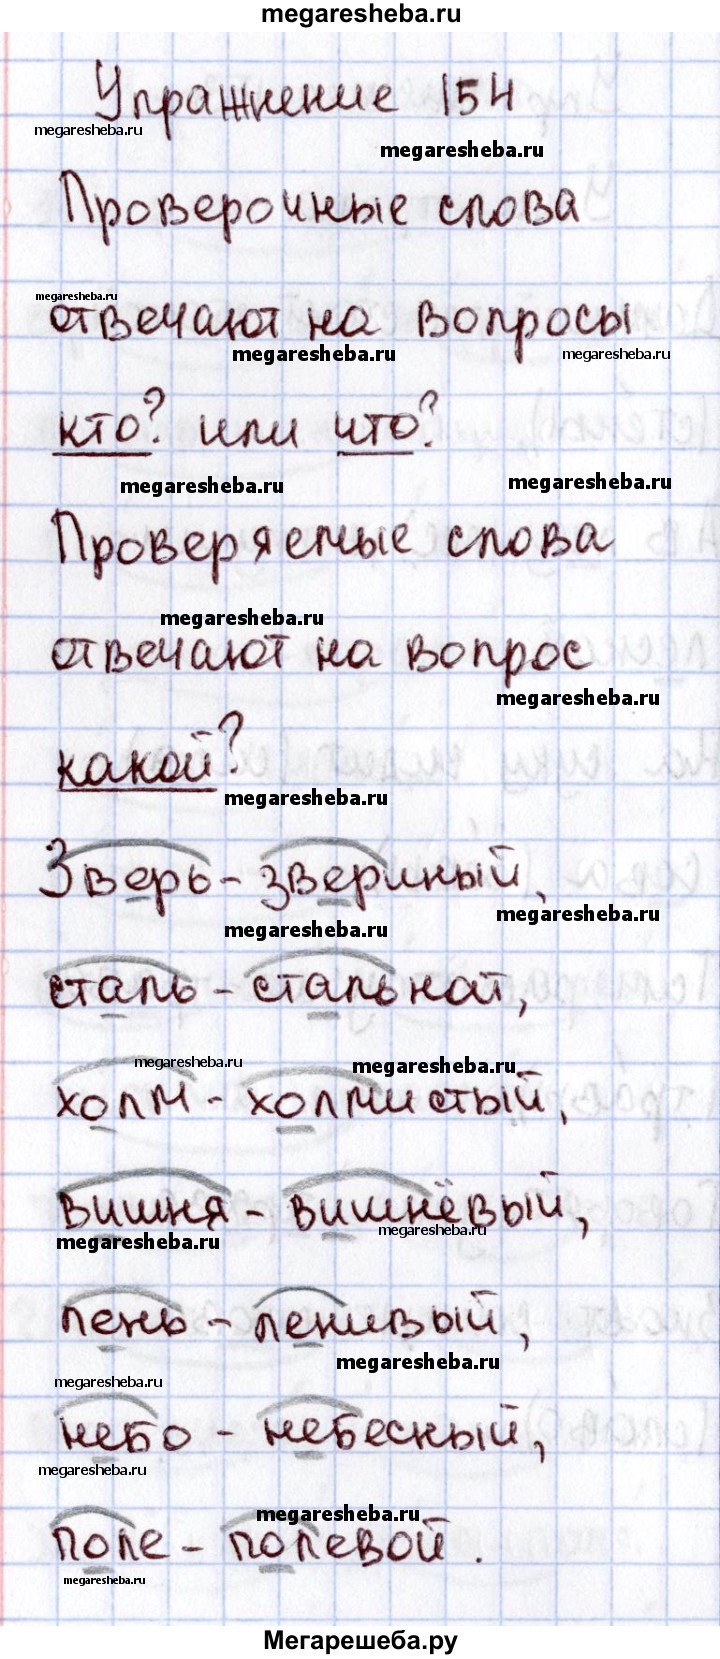 megaresheba.ru
Упражнение 154
megaresheba.ru
megaresheba.ru
Проверочные слова
megaresheba.ru
отвечают на вопросы
megaresheba.ru
megaresheba.ru
кто? или что?
megaresheba.ru
megaresheba.ru
Проверяемые слова
megaresheba.ru
отвечают на вопрос
megaresheba.ru
какой?
megaresheba.ru
Зверь - звериный,
megaresheba.ru
megaresheba.ru
сталь - стальной,
megaresheba.ru
megaresheba.ru
холм - холмистый,
вишня - вишнёвый,
megaresheba.ru
megaresheba.ru
лень - ленивый,
megaresheba.ru
megaresheba.ru
небо - небесный,
megaresheba.ru
megaresheba.ru
поле - полевой.
megaresheba.ru
Мегарешеба.ру